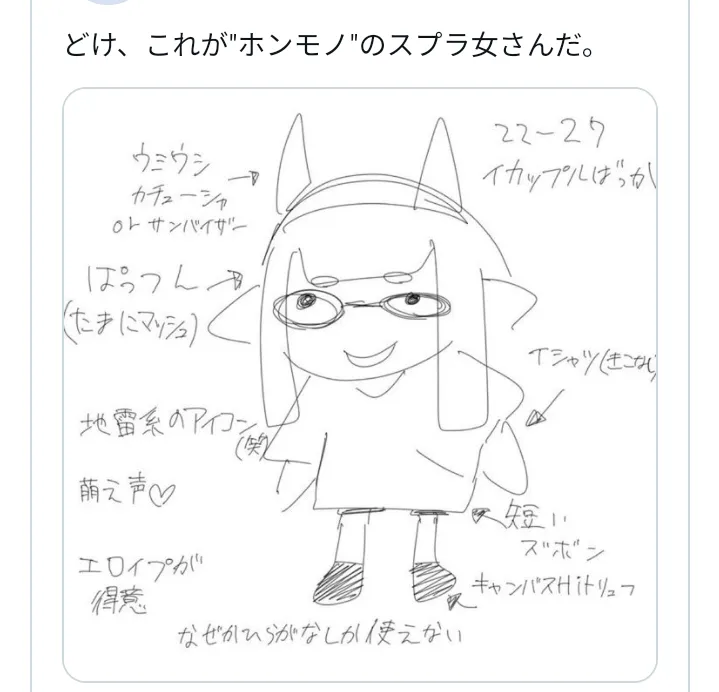 どけ、これが"ホンモノ"のスプラ女さんだ。
22-27
イカップルばっか
ウミウシ
カチューシャ
or サンバイザー
ぱっつん
(たまにマッシュ)
Tシャツ(きこなし)
地雷系のアイコン
(笑)
萌え声♡
短い
ズボン
エロイプが
得意
キャンバスHiトリュフ
なぜかひらがなしか使えない